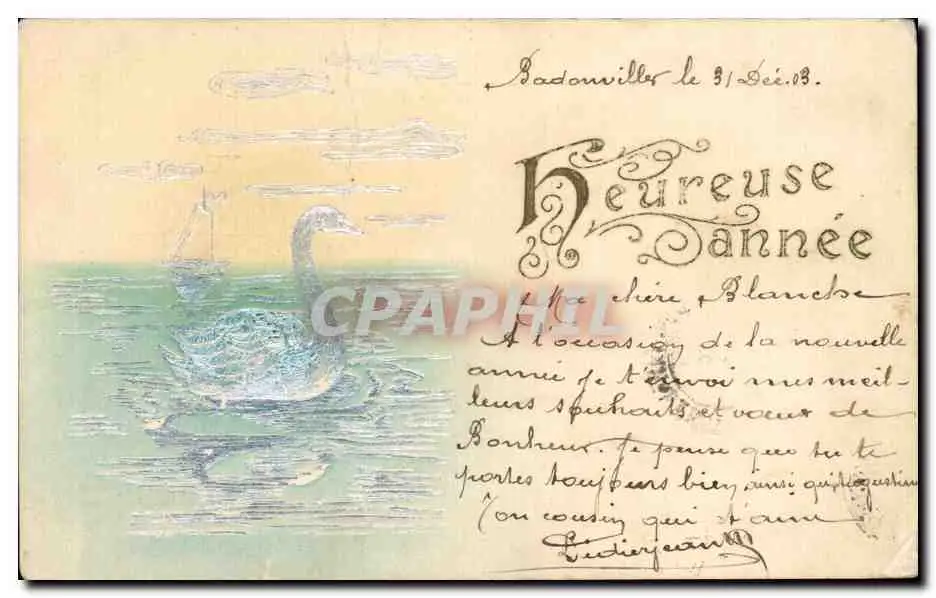 Badonviller le 31 Déc. 03.
Heureuse
année
Ma chère Blanche
A l'occasion de la nouvelle
année je t'envoi mes meil-
leurs souhaits et voeux de
Bonheur. Je pense que tu te
portes toujours bien ainsi qu'Augustine
Ton cousin qui t'aime
CPAPHIL